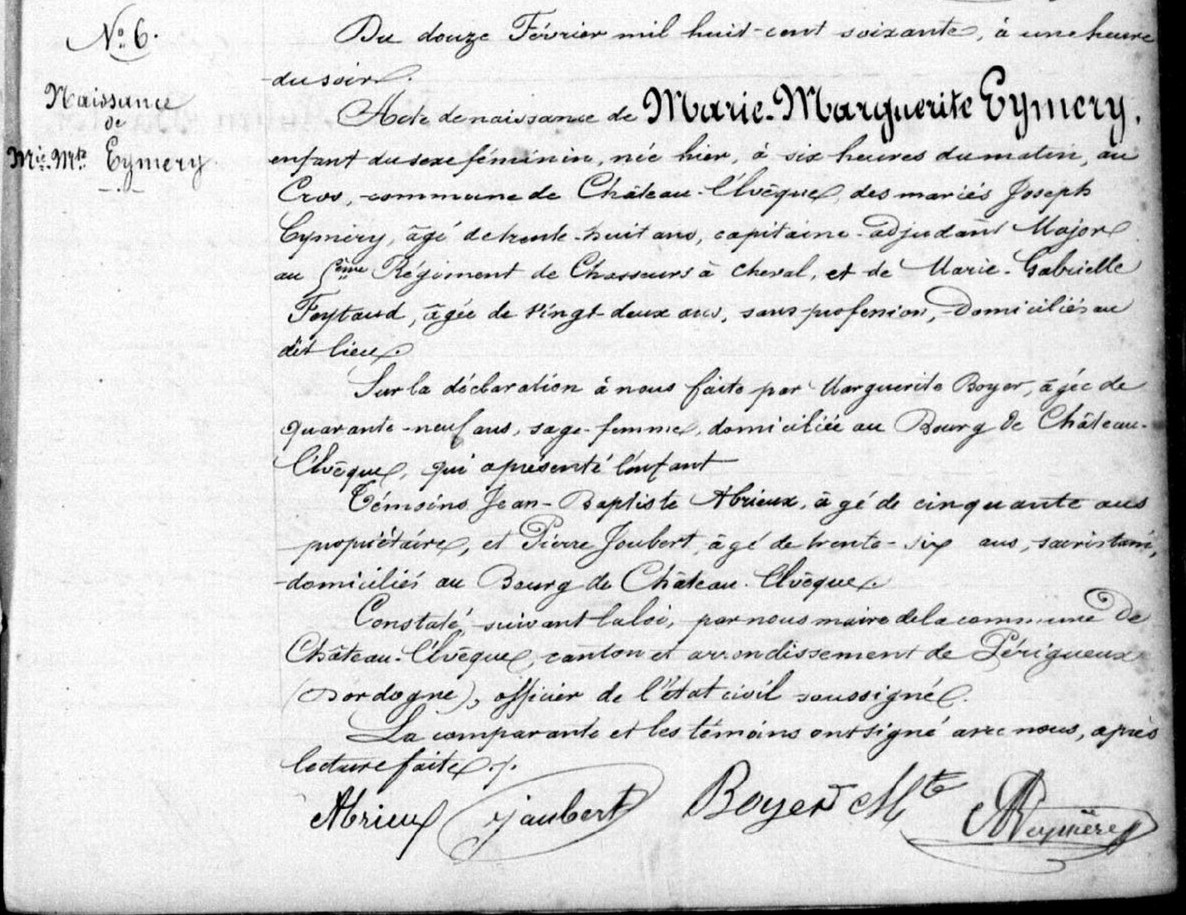 No. 6.
Naissance
de
Mie. Mte. Eymery
Du douze Février mil huit-cent soixante, à une heure
du soir.
Acte de naissance de Marie-Marguerite Eymery.
enfant du sexe féminin, née hier, à six heures du matin, au
Cros, commune de Château-l'Evêque, des mariés Joseph
Eymery, âgé de trente-huit ans, capitaine-adjudant Major
au Régiment de Chasseurs à cheval, et de Marie-Gabrielle
Feytaud, âgée de vingt-deux ans, sans profession, domiciliés au
dit lieu.
Sur la déclaration à nous faite par Marguerite Boyer, âgée de
quarante-neuf ans, sage-femme, domiciliée au Bourg de Château-
l'Evêque, qui a présenté l'enfant
Témoins Jean-Baptiste Abrieux, âgé de cinquante ans
propriétaire, et Pierre Joubert, âgé de trente-six ans, sacristain,
domiciliés au Bourg de Château-l'Evêque.
Constaté, suivant la loi, par nous maire de la commune de
Château-l'Evêque, canton et arrondissement de Périgueux
(Dordogne), officier de l'état civil soussigné.
La comparante et les témoins ont signé avec nous, après
lecture faite ./.
Abrieux Jaubert Boyer Mte